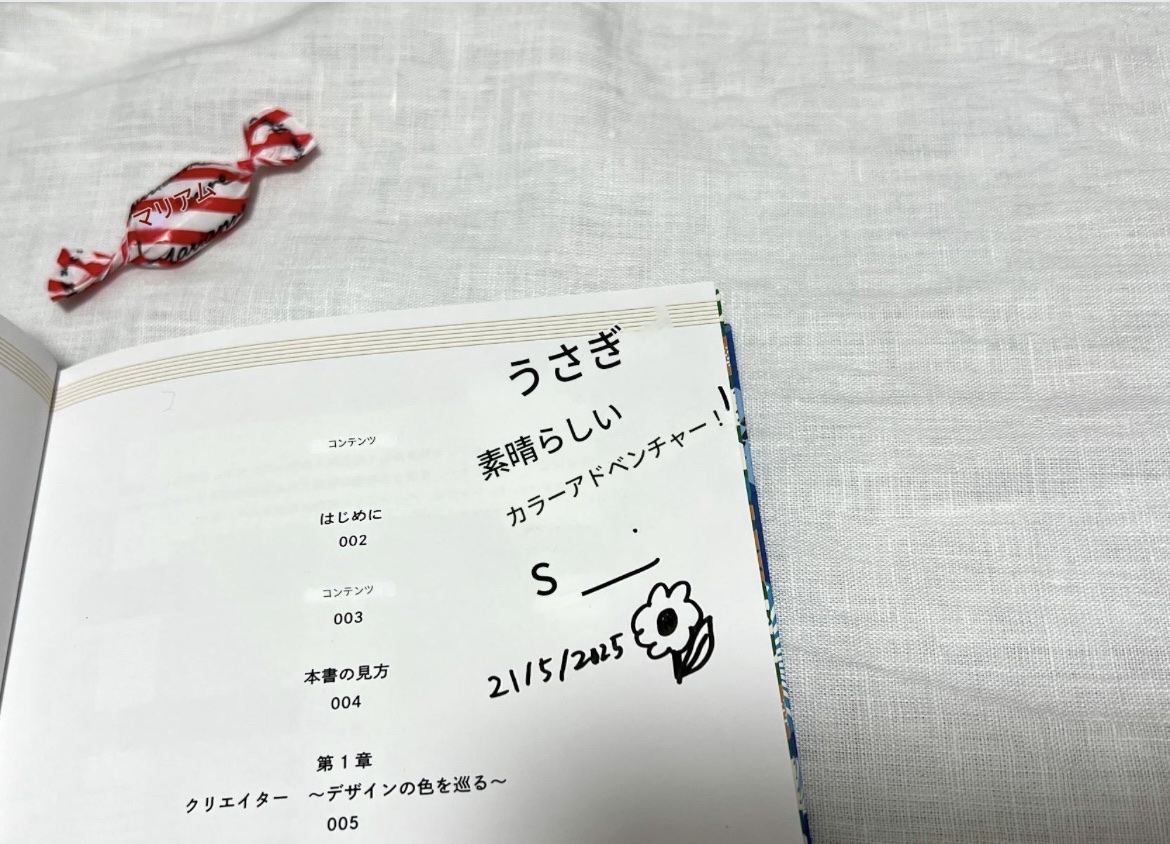 マリアム
うさぎ
素晴らしい
カラーアドベンチャー！
S
21/5/2025
コンテンツ
はじめに
002
コンテンツ
003
本書の見方
004
第1章
クリエイター　～デザインの色を巡る～
005